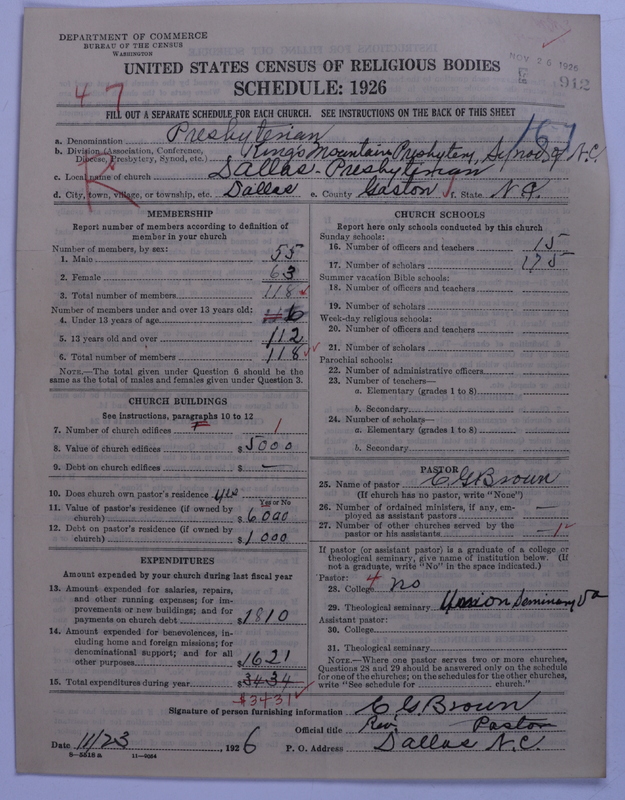 DEPARTMENT OF COMMERCE
BUREAU OF THE CENSUS
WASHINGTON
NOV 26 1926
912
UNITED STATES CENSUS OF RELIGIOUS BODIES
SCHEDULE: 1926
47
FILL OUT A SEPARATE SCHEDULE FOR EACH CHURCH. SEE INSTRUCTIONS ON THE BACK OF THIS SHEET
167
a. Denomination Presbyterian
b. Division (Association, Conference, Diocese, Presbytery, Synod, etc.) Kings Mountain Presbytery, Synod of N.C.
c. Local name of church Dallas - Presbyterian
R
d. City, town, village, or township, etc. Dallas e. County Gaston f. State N.C.
MEMBERSHIP
Report number of members according to definition of
member in your church
Number of members, by sex:
1. Male 55
2. Female 63
3. Total number of members 118
Number of members under and over 13 years old:
4. Under 13 years of age 6
5. 13 years old and over 112
6. Total number of members 118
NOTE.—The total given under Question 6 should be
same as the total of males and females given under Question 3.
CHURCH BUILDINGS
See instructions, paragraphs 10 to 12
7. Number of church edifices 1
8. Value of church edifices $5000
9. Debt on church edifices $ —
10. Does church own pastor's residence yes
Yes or No
11. Value of pastor's residence (if owned by
church) $6000
12. Debt on pastor's residence (if owned by
church) $1000
EXPENDITURES
Amount expended by your church during last fiscal year
13. Amount expended for salaries, repairs,
and other running expenses; for im-
provements or new buildings; and for
payments on church debt $1810
14. Amount expended for benevolences, in-
cluding home and foreign missions; for
denominational support; and for all
other purposes $1621
15. Total expenditures during year $3434
$3431
CHURCH SCHOOLS
Report here only schools conducted by this church
Sunday schools:
16. Number of officers and teachers 15
17. Number of scholars 175
Summer vacation Bible schools:
18. Number of officers and teachers
19. Number of scholars
Week-day religious schools:
20. Number of officers and teachers
21. Number of scholars
Parochial schools:
22. Number of administrative officers
23. Number of teachers—
a. Elementary (grades 1 to 8)
b. Secondary
24. Number of scholars—
a. Elementary (grades 1 to 8)
b. Secondary
PASTOR
25. Name of pastor C G Brown
(If church has no pastor, write "None")
26. Number of ordained ministers, if any, em-
ployed as assistant pastors —
27. Number of other churches served by the
pastor or his assistants — 1
If pastor (or assistant pastor) is a graduate of a college or
theological seminary, give name of institution below. (If
not a graduate, write "No" in the space indicated.)
Pastor: 4
28. College no
29. Theological seminary Union Seminary Va
Assistant pastor:
30. College
31. Theological seminary
NOTE.—Where one pastor serves two or more churches,
Questions 28 and 29 should be answered only on the schedule
for one of the churches; on the schedules for the other churches,
write "See schedule for church."
Signature of person furnishing information C G Brown
Official title Rev. Pastor
Date 11/23, 1926 P. O. Address Dallas N.C.
8-5518 a 11-9054